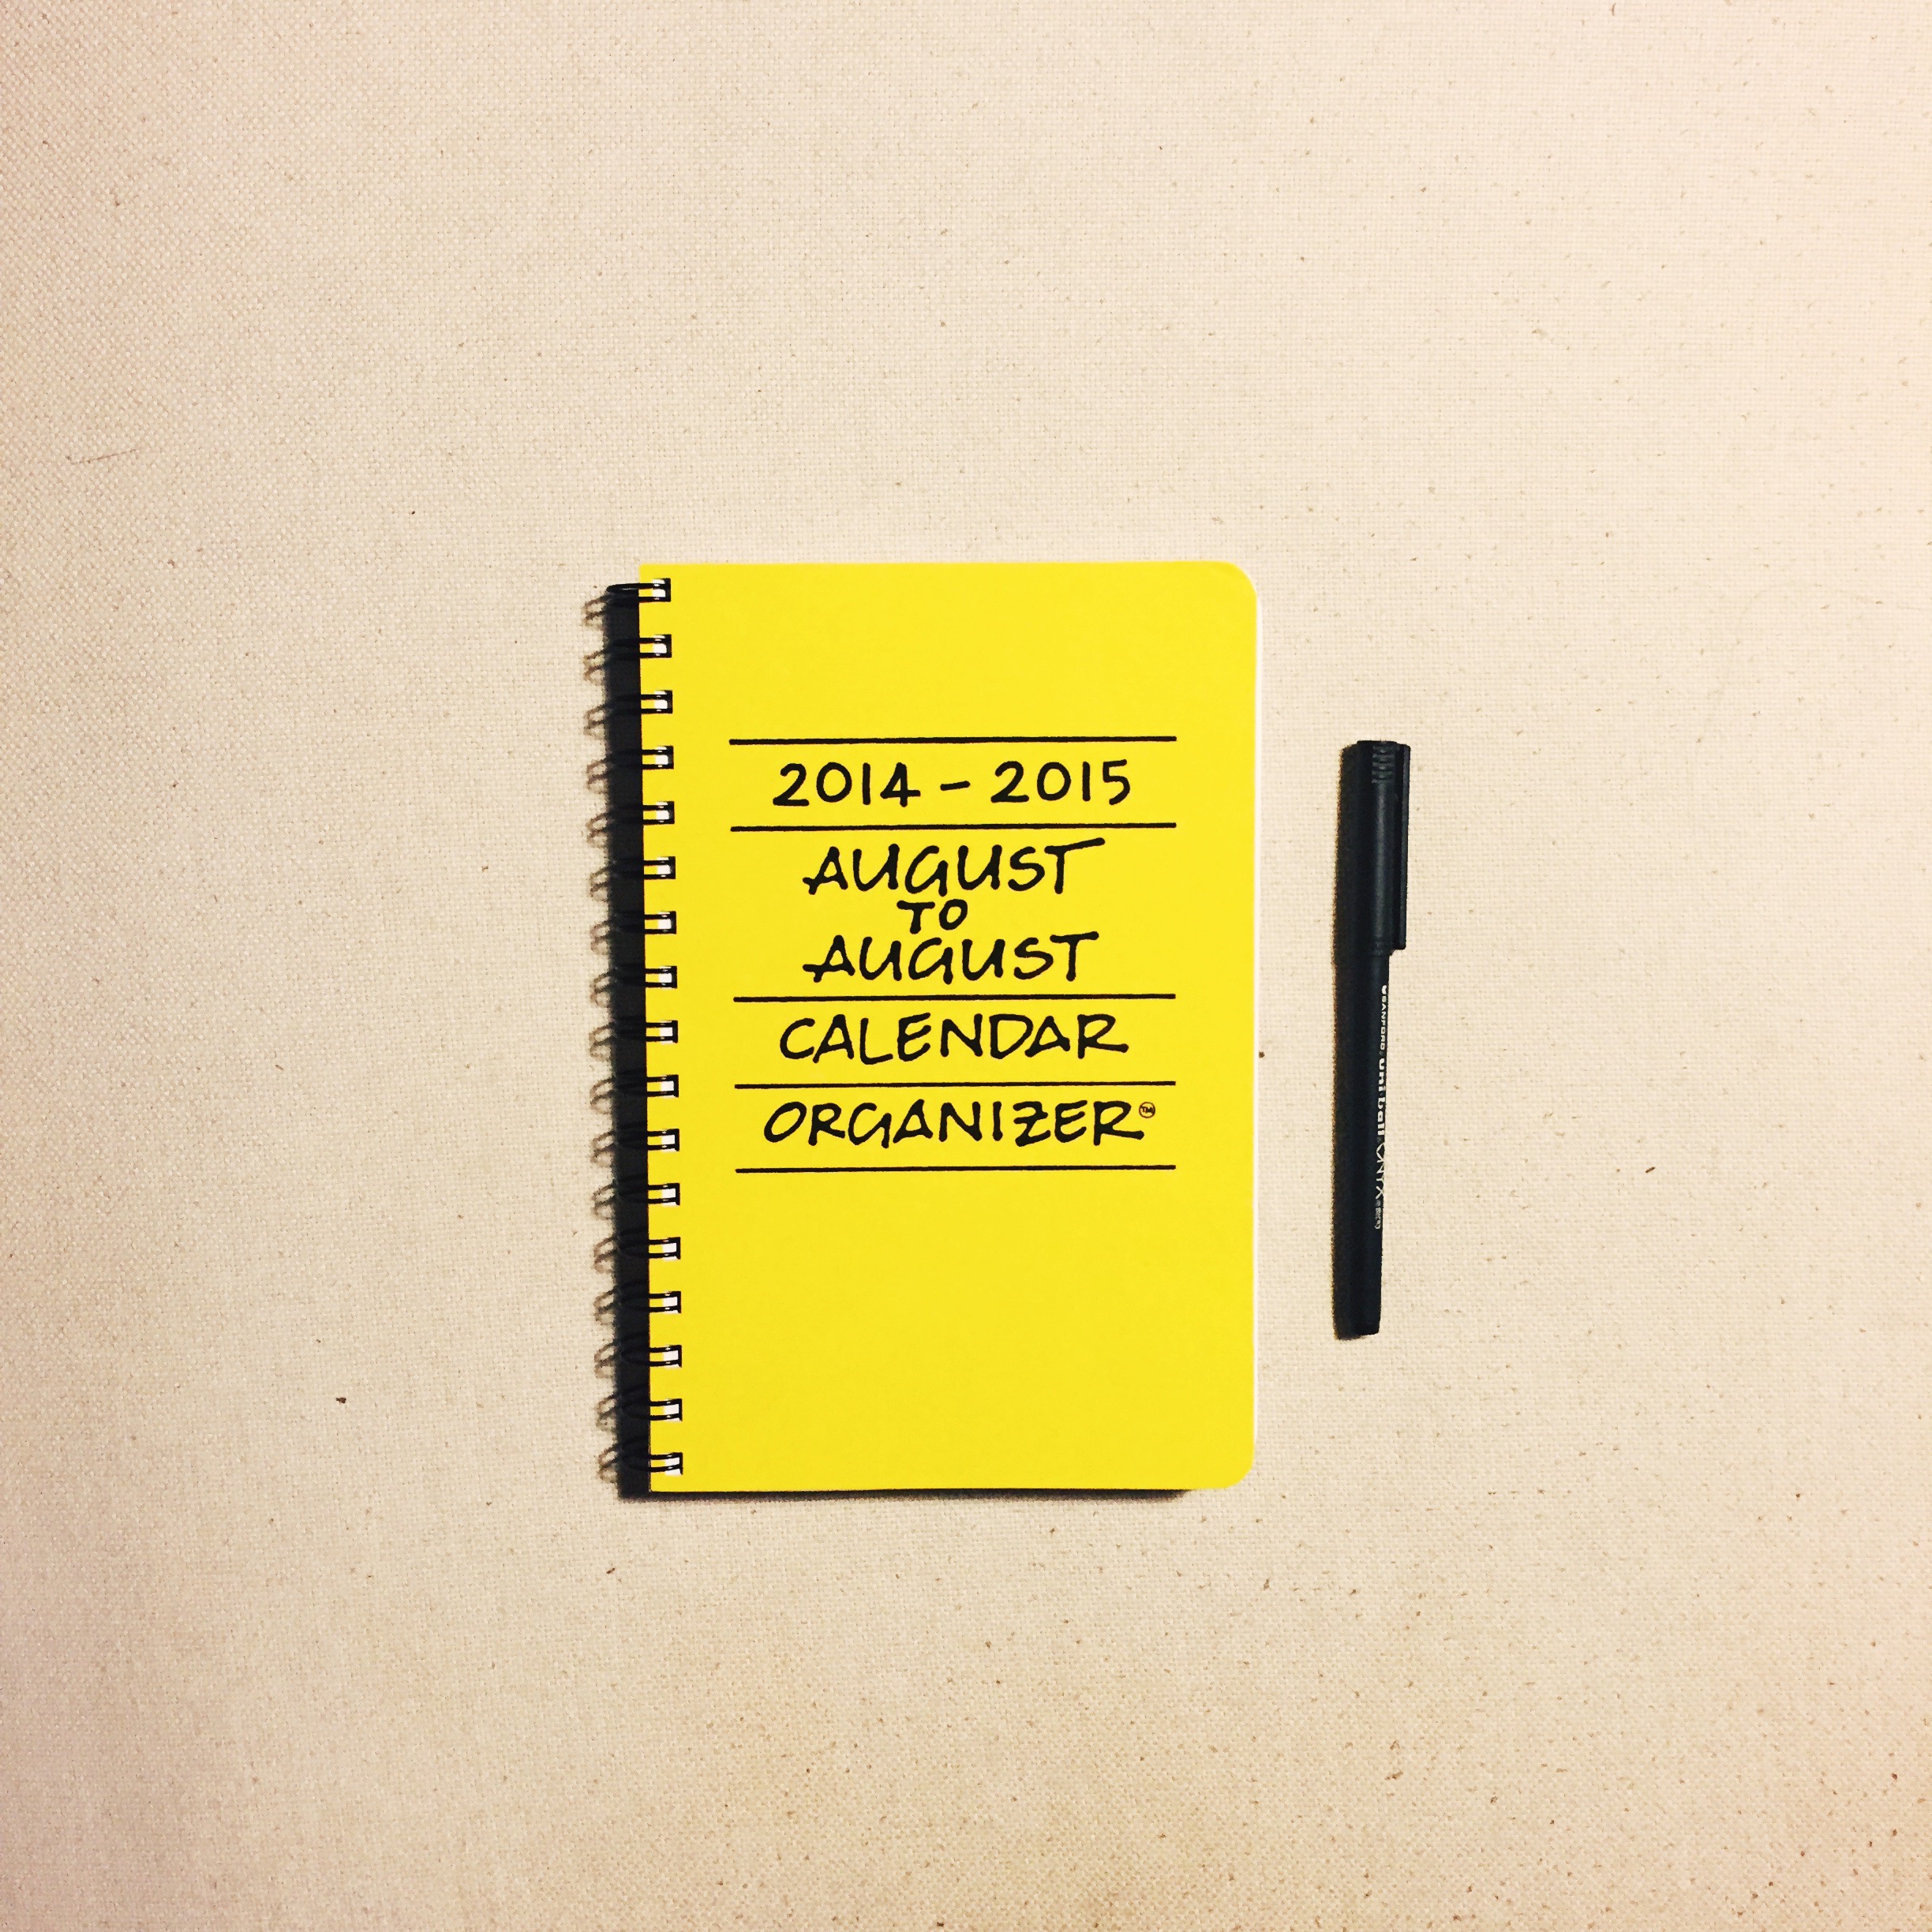 2014 – 2015
AUGUST
TO
AUGUST
CALENDAR
ORGANIZER™
SANFORD uniball ONYX